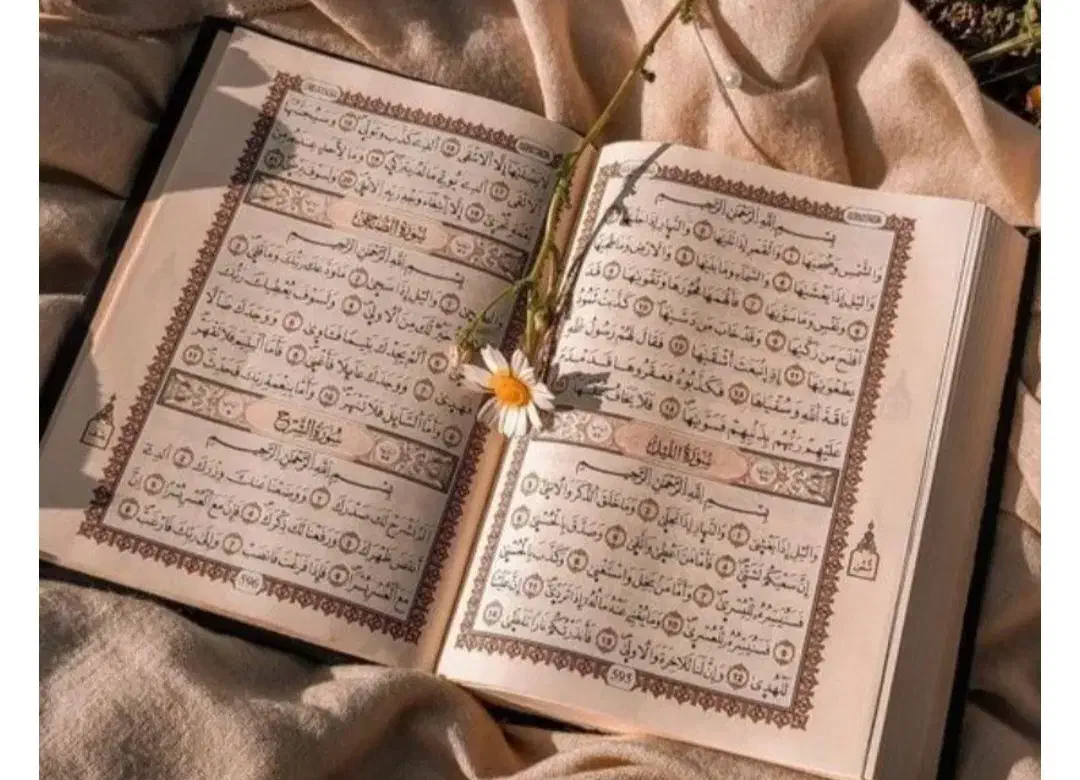 بِسْمِ اللَّهِ الرَّحْمَٰنِ الرَّحِيمِ
وَالشَّمْسِ وَضُحَىٰهَا ١ وَالْقَمَرِ إِذَا تَلَىٰهَا ٢ وَالنَّهَارِ إِذَا جَلَّىٰهَا ٣
وَالَّيْلِ إِذَا يَغْشَىٰهَا ٤ وَالسَّمَاءِ وَمَا بَنَىٰهَا ٥ وَالْأَرْضِ وَمَا طَحَىٰهَا
٦ وَنَفْسٍ وَمَا سَوَّىٰهَا ٧ فَأَلْهَمَهَا فُجُورَهَا وَتَقْوَىٰهَا ٨ قَدْ
أَفْلَحَ مَن زَكَّىٰهَا ٩ وَقَدْ خَابَ مَن دَسَّىٰهَا ١٠ كَذَّبَتْ ثَمُودُ
بِطَغْوَىٰهَا ١١ إِذِ انبَعَثَ أَشْقَىٰهَا ١٢ فَقَالَ لَهُمْ رَسُولُ اللَّهِ
نَاقَةَ اللَّهِ وَسُقْيَٰهَا ١٣ فَكَذَّبُوهُ فَعَقَرُوهَا فَدَمْدَمَ
عَلَيْهِمْ رَبُّهُم بِذَنبِهِمْ فَسَوَّىٰهَا ١٤ يَخَافُ
سُورَةُ اللَّيْلِ
بِسْمِ اللَّهِ الرَّحْمَٰنِ الرَّحِيمِ
وَالَّيْلِ إِذَا يَغْشَىٰ ١ وَالنَّهَارِ إِذَا تَجَلَّىٰ ٢ وَمَا خَلَقَ الذَّكَرَ وَالْأُنثَىٰ ٣
إِنَّ سَعْيَكُمْ لَشَتَّىٰ ٤ فَأَمَّا مَنْ أَعْطَىٰ وَاتَّقَىٰ ٥ وَصَدَّقَ بِالْحُسْنَىٰ ٦
فَسَنُيَسِّرُهُ لِلْيُسْرَىٰ ٧ وَأَمَّا مَن بَخِلَ وَاسْتَغْنَىٰ ٨ وَكَذَّبَ بِالْحُسْنَىٰ
٩ فَسَنُيَسِّرُهُ لِلْعُسْرَىٰ ١٠ وَمَا يُغْنِي عَنْهُ مَالُهُ إِذَا تَرَدَّىٰ ١١ إِنَّ عَلَيْنَا
لَلْهُدَىٰ ١٢ وَإِنَّ لَنَا لَلْآخِرَةَ وَالْأُولَىٰ ١٣ فَأَنذَرْتُكُمْ نَارًا تَلَظَّىٰ ١٤
595
لَا يَصْلَىٰهَا إِلَّا الْأَشْقَى ١٥ الَّذِي كَذَّبَ وَتَوَلَّىٰ ١٦ وَسَيُجَنَّبُهَا
الْأَتْقَى ١٧ الَّذِي يُؤْتِي مَالَهُ يَتَزَكَّىٰ ١٨ وَمَا لِأَحَدٍ عِندَهُ مِن
نِّعْمَةٍ تُجْزَىٰ ١٩ إِلَّا ابْتِغَاءَ وَجْهِ رَبِّهِ الْأَعْلَىٰ ٢٠ وَلَسَوْفَ يَرْضَىٰ ٢١
سُورَةُ الضُّحَىٰ
بِسْمِ اللَّهِ الرَّحْمَٰنِ الرَّحِيمِ
١ وَالَّيْلِ إِذَا سَجَىٰ ٢ مَا وَدَّعَكَ رَبُّكَ وَمَا قَلَىٰ ٣
لَّكَ مِنَ الْأُولَىٰ ٤ وَلَسَوْفَ يُعْطِيكَ رَبُّكَ
٥ أَلَمْ يَجِدْكَ يَتِيمًا فَآوَىٰ ٦ وَوَجَدَكَ ضَالًّا
فَهَدَىٰ ٧ وَوَجَدَكَ عَائِلًا فَأَغْنَىٰ ٨ فَأَمَّا الْيَتِيمَ فَلَا تَقْهَرْ
٩ وَأَمَّا السَّائِلَ فَلَا تَنْهَرْ ١٠ وَأَمَّا بِنِعْمَةِ رَبِّكَ فَحَدِّثْ ١١
سُورَةُ الشَّرْحِ
بِسْمِ اللَّهِ الرَّحْمَٰنِ الرَّحِيمِ
أَلَمْ نَشْرَحْ لَكَ صَدْرَكَ ١ وَوَضَعْنَا عَنكَ وِزْرَكَ ٢ الَّذِي
أَنقَضَ ظَهْرَكَ ٣ وَرَفَعْنَا لَكَ ذِكْرَكَ ٤ فَإِنَّ مَعَ الْعُسْرِ يُسْرًا ٥ إِنَّ
مَعَ الْعُسْرِ يُسْرًا ٦ فَإِذَا فَرَغْتَ فَانصَبْ ٧ وَإِلَىٰ رَبِّكَ فَارْغَب ٨
596